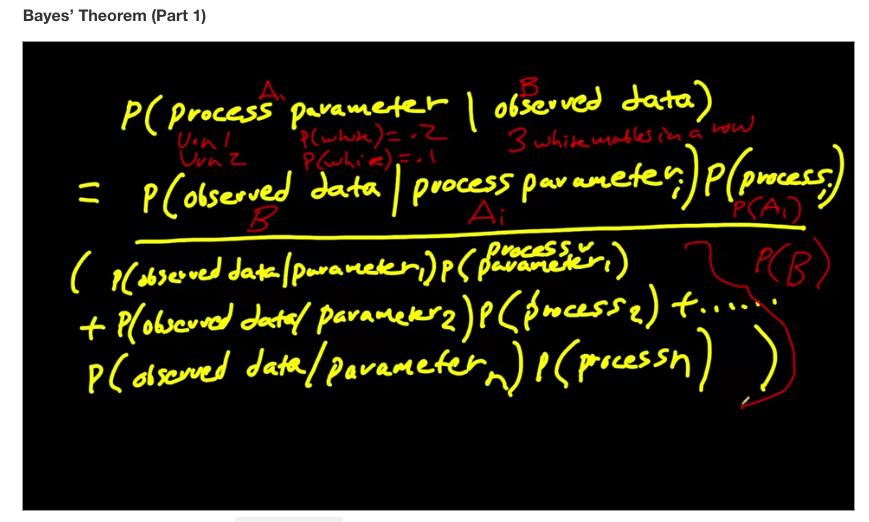 Bayes' Theorem (Part 1)
A, B
P(process parameter | observed data)
Urn 1 P(white) = .2 3 white marbles in a row
Urn 2 P(white) = .1
= P(observed data | process parameter i) P(process i)
B Ai P(Ai)
( P(observed data/parameter 1) P(process parameter 1) P(B)
+ P(observed data/parameter 2) P(process 2) + ......
P(observed data/parameter n) P(process n) )